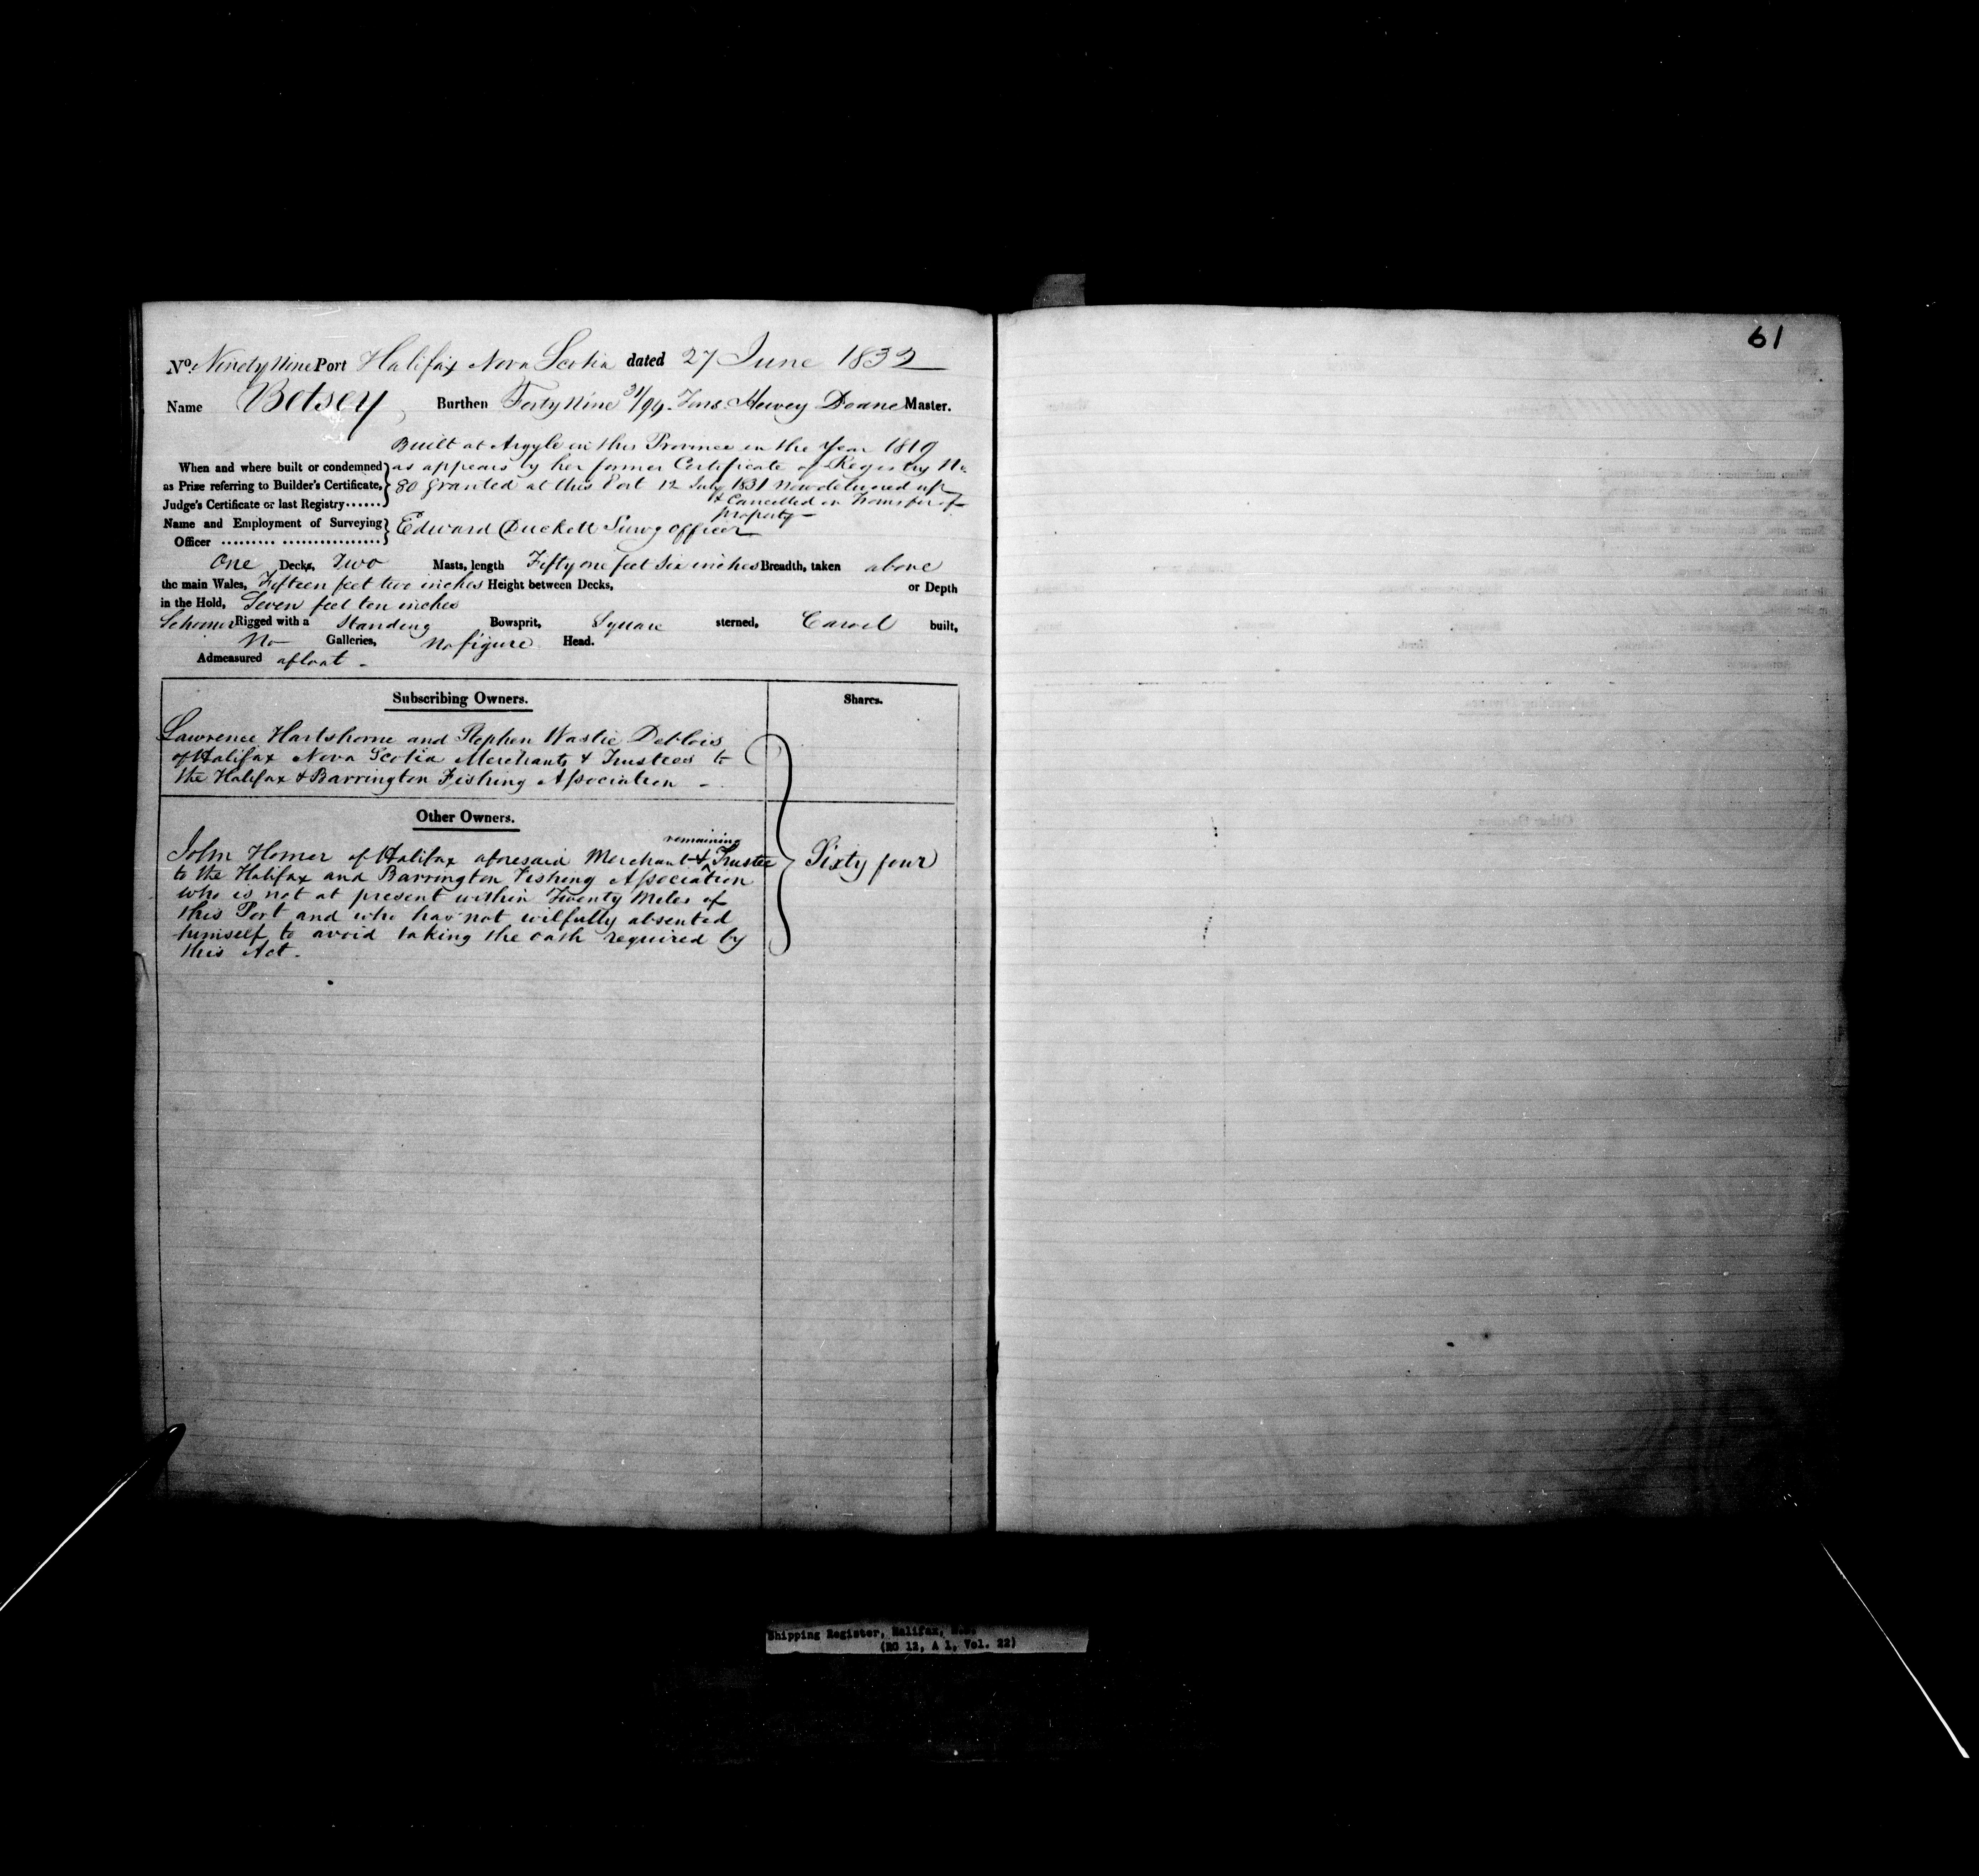 61
No. Ninety Nine Port Halifax Nova Scotia dated 27 June 1832
Name Betsey Burthen Forty Nine 31/94 Tons. Hervey Doane Master.
Built at Argyle in this Province in the Year 1819
When and where built or condemned as appears by her former Certificate of Registry No
as Prize referring to Builder's Certificate, 80 granted at this Port 12 July 1831 now delivered up
Judge's Certificate or last Registry...... & Cancelled on Transfer of
property
Name and Employment of Surveying Edward Duckett Survg officer
Officer ......... .................
One Decks, Two Masts, length Fifty one feet six inches Breadth, taken above
the main Wales, Fifteen feet two inches Height between Decks, or Depth
in the Hold, Seven feet ten inches
Schooner Rigged with a Standing Bowsprit, Square sterned, Carvel built,
No Galleries, No figure Head.
Admeasured afloat -
Subscribing Owners. Shares.
Lawrence Hartshorne and Stephen Wastie Deblois
of Halifax Nova Scotia Merchants & Trustees to
the Halifax & Barrington Fishing Association -
Other Owners.
remaining
John Homer of Halifax aforesaid Merchant & Trustee Sixty four
to the Halifax and Barrington Fishing Association
who is not at present within Twenty Miles of
this Port and who has not wilfully absented
himself to avoid taking the oath required by
this Act.
Shipping Register, Halifax, N.S.
(RG 12, A 1, Vol. 22)